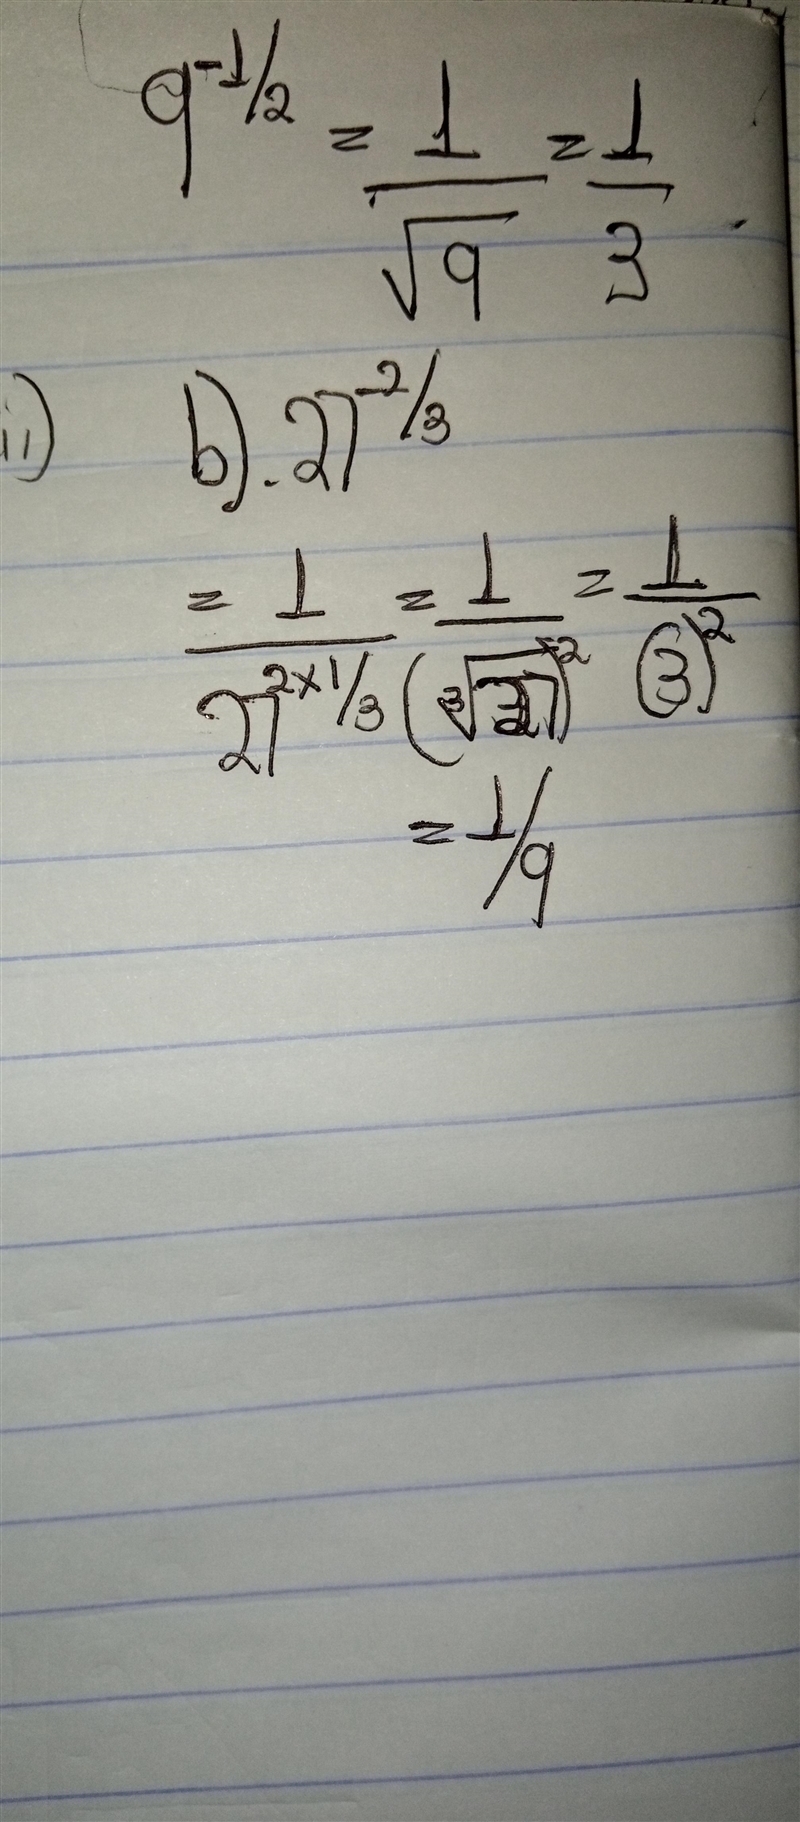 9^-1/2 = 1/√9 = 1/3
ii) b). 27^-2/3
= 1/27^2×1/3 = 1/(³√27)^2 = 1/(3)^2
= 1/9